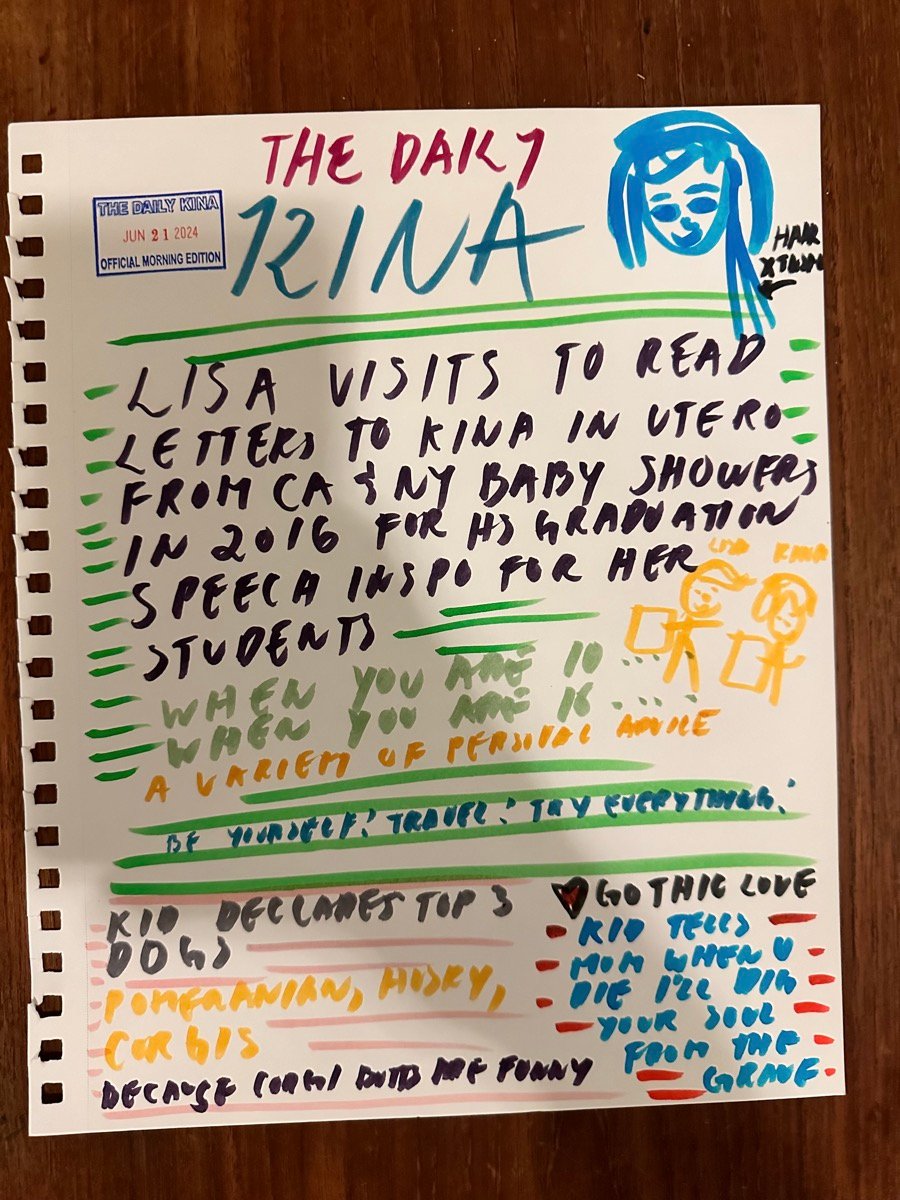 THE DAILY
KINA
THE DAILY KINA
JUN 21 2024
OFFICIAL MORNING EDITION
HAIR
LISA VISITS TO READ
LETTERS TO KINA IN UTERO
FROM CA & NY BABY SHOWERS
IN 2016 FOR HS GRADUATION
SPEECH INSPO FOR HER
STUDENTS
LISA KINA
WHEN YOU ARE 10 ....
WHEN YOU ARE 16 ....
A VARIETY OF PERSONAL ADVICE
BE YOURSELF! TRAVEL! TRY EVERYTHING!
KID DECLARES TOP 3
DOGS
POMERANIAN, HUSKY,
CORGIS
BECAUSE CORGI BUTTS ARE FUNNY
GOTHIC LOVE
KID TELLS
MOM WHEN U
DIE I'LL DIG
YOUR SOUL
FROM THE
GRAVE